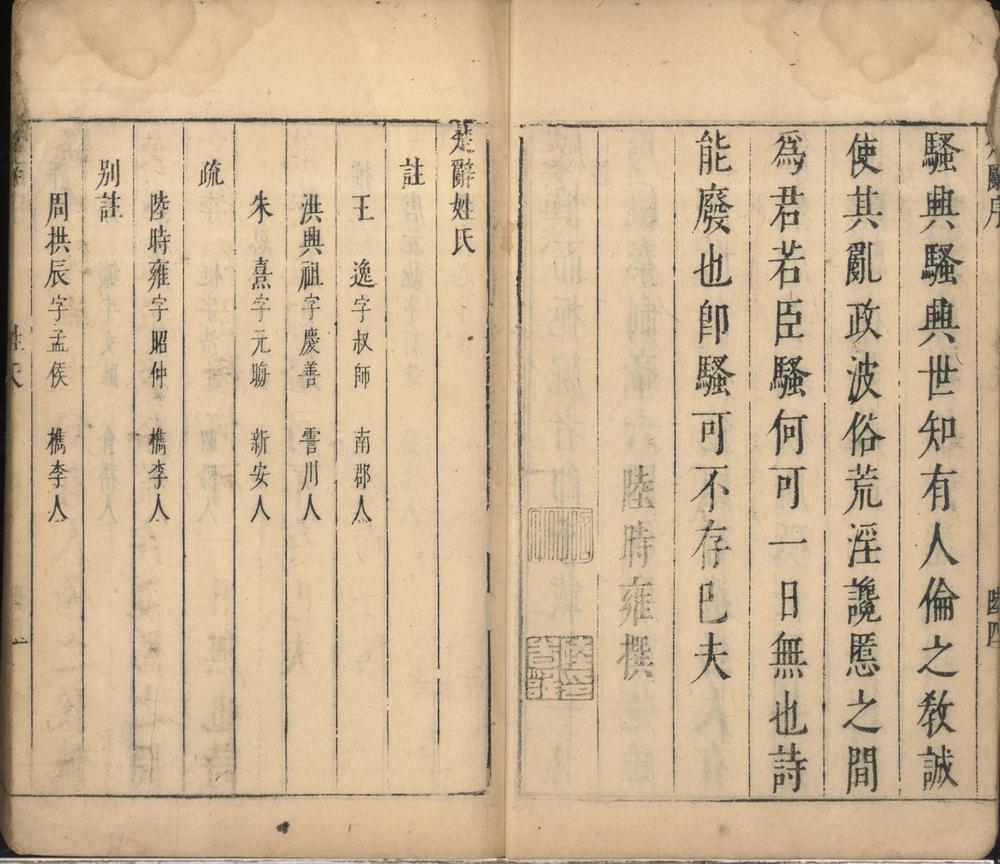 楚辭序
騷興騷興世知有人倫之敎誠
使其亂政波俗荒淫讒慝之間
為君若臣騷何可一日無也詩
能廢也卽騷可不存已夫
陸時雍撰
楚辭姓氏
註
王　逸字叔師　南郡人
洪興祖字慶善　霅川人
朱　熹字元晦　新安人
疏
陸時雍字昭仲　檇李人
別註
周拱辰字孟侯　檇李人
姓氏
一